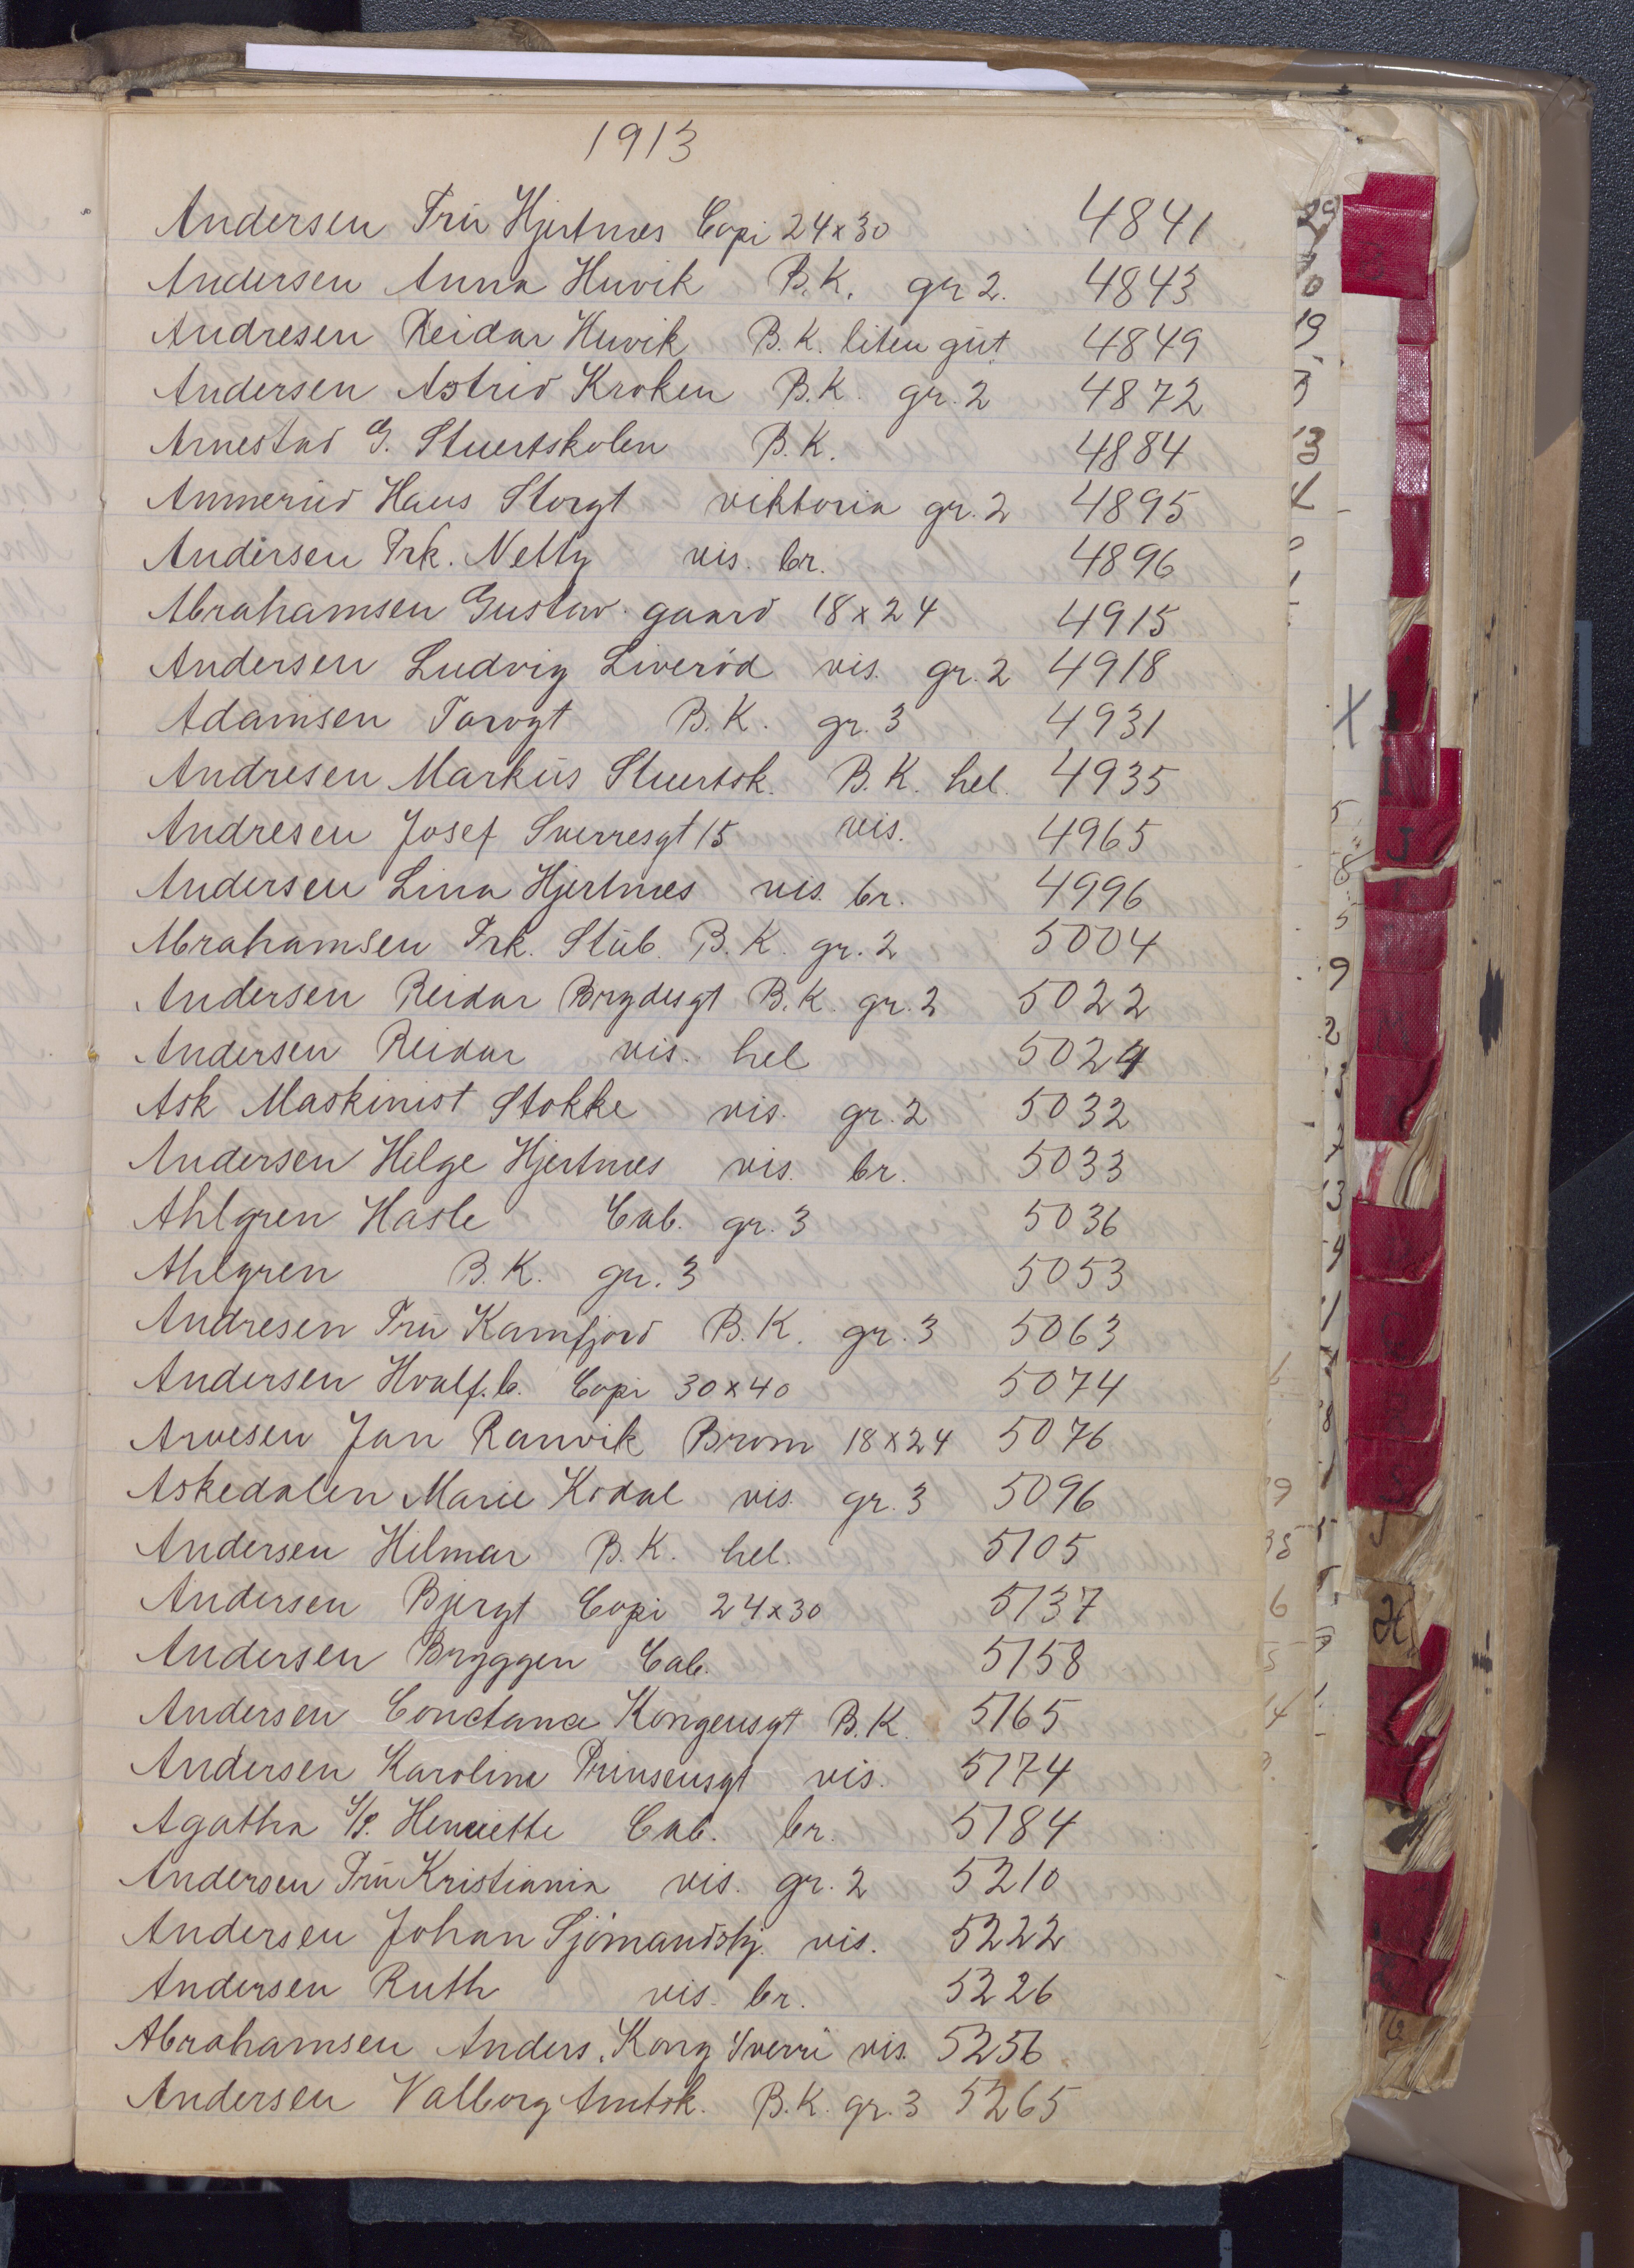 1913
Andersen Frü Hjertnes Copi 24x30 4841
Andersen Anna Huvik B.K. gr 2. 4843
Andresen Reidar Huvik B.K. liten güt 4849
Andersen Astrid Kroken B.K. gr. 2 4872
Arnestad G. Stuertskolen B.K. 4884
Ammerüd Hans Storgt viktoria gr. 2 4895
Andersen Frk. Netty vis. br. 4896
Abrahamsen Gustav. gaard 18x24 4915
Andersen Ludvig Liveröd vis. gr. 2 4918
Adamsen Torvgt B.K. gr. 3 4931
Andresen Marküs Stuertsk. B.K. hel. 4935
Andresen Josef Sverresgt 15 vis. 4965
Andersen Lina Hjertnes vis. br. 4996
Abrahamsen Frk. Stüb. B.K. gr. 2 5004
Andersen Reidar Brydesgt B.K. gr. 2 5022
Andersen Reidar vis. hel 5024
Ask Maskinist Stokke vis. gr. 2 5032
Andersen Helge Hjertnes vis. br. 5033
Ahlgren Hasle Cab. gr. 3 5036
Ahlgren B.K. gr. 3 5053
Andresen Frü Kamfjord B.K. gr. 3 5063
Andersen Hvalf.b. Copi 30x40 5074
Arvesen Jan Ranvik Brom 18x24 5076
Askedalen Marie Kodal vis. gr. 3 5096
Andersen Hilmar B.K. hel. 5105
Andersen Bjergt Copi 24x30 5137
Andersen Bryggen Cab. 5158
Andersen Constance Kongensgt B.K. 5165
Andersen Karoline Prinsensgt vis. 5174
Agatha S/S. Henriette Cab. br. 5184
Andersen Frü Kristiania vis. gr. 2 5210
Andersen Johan Sjömandshj. vis. 5222
Andersen Ruth vis. br. 5226
Abrahamsen Anders. Kong Sverri vis. 5256
Andersen Valborg Amtsk. B.K. gr. 3 5265